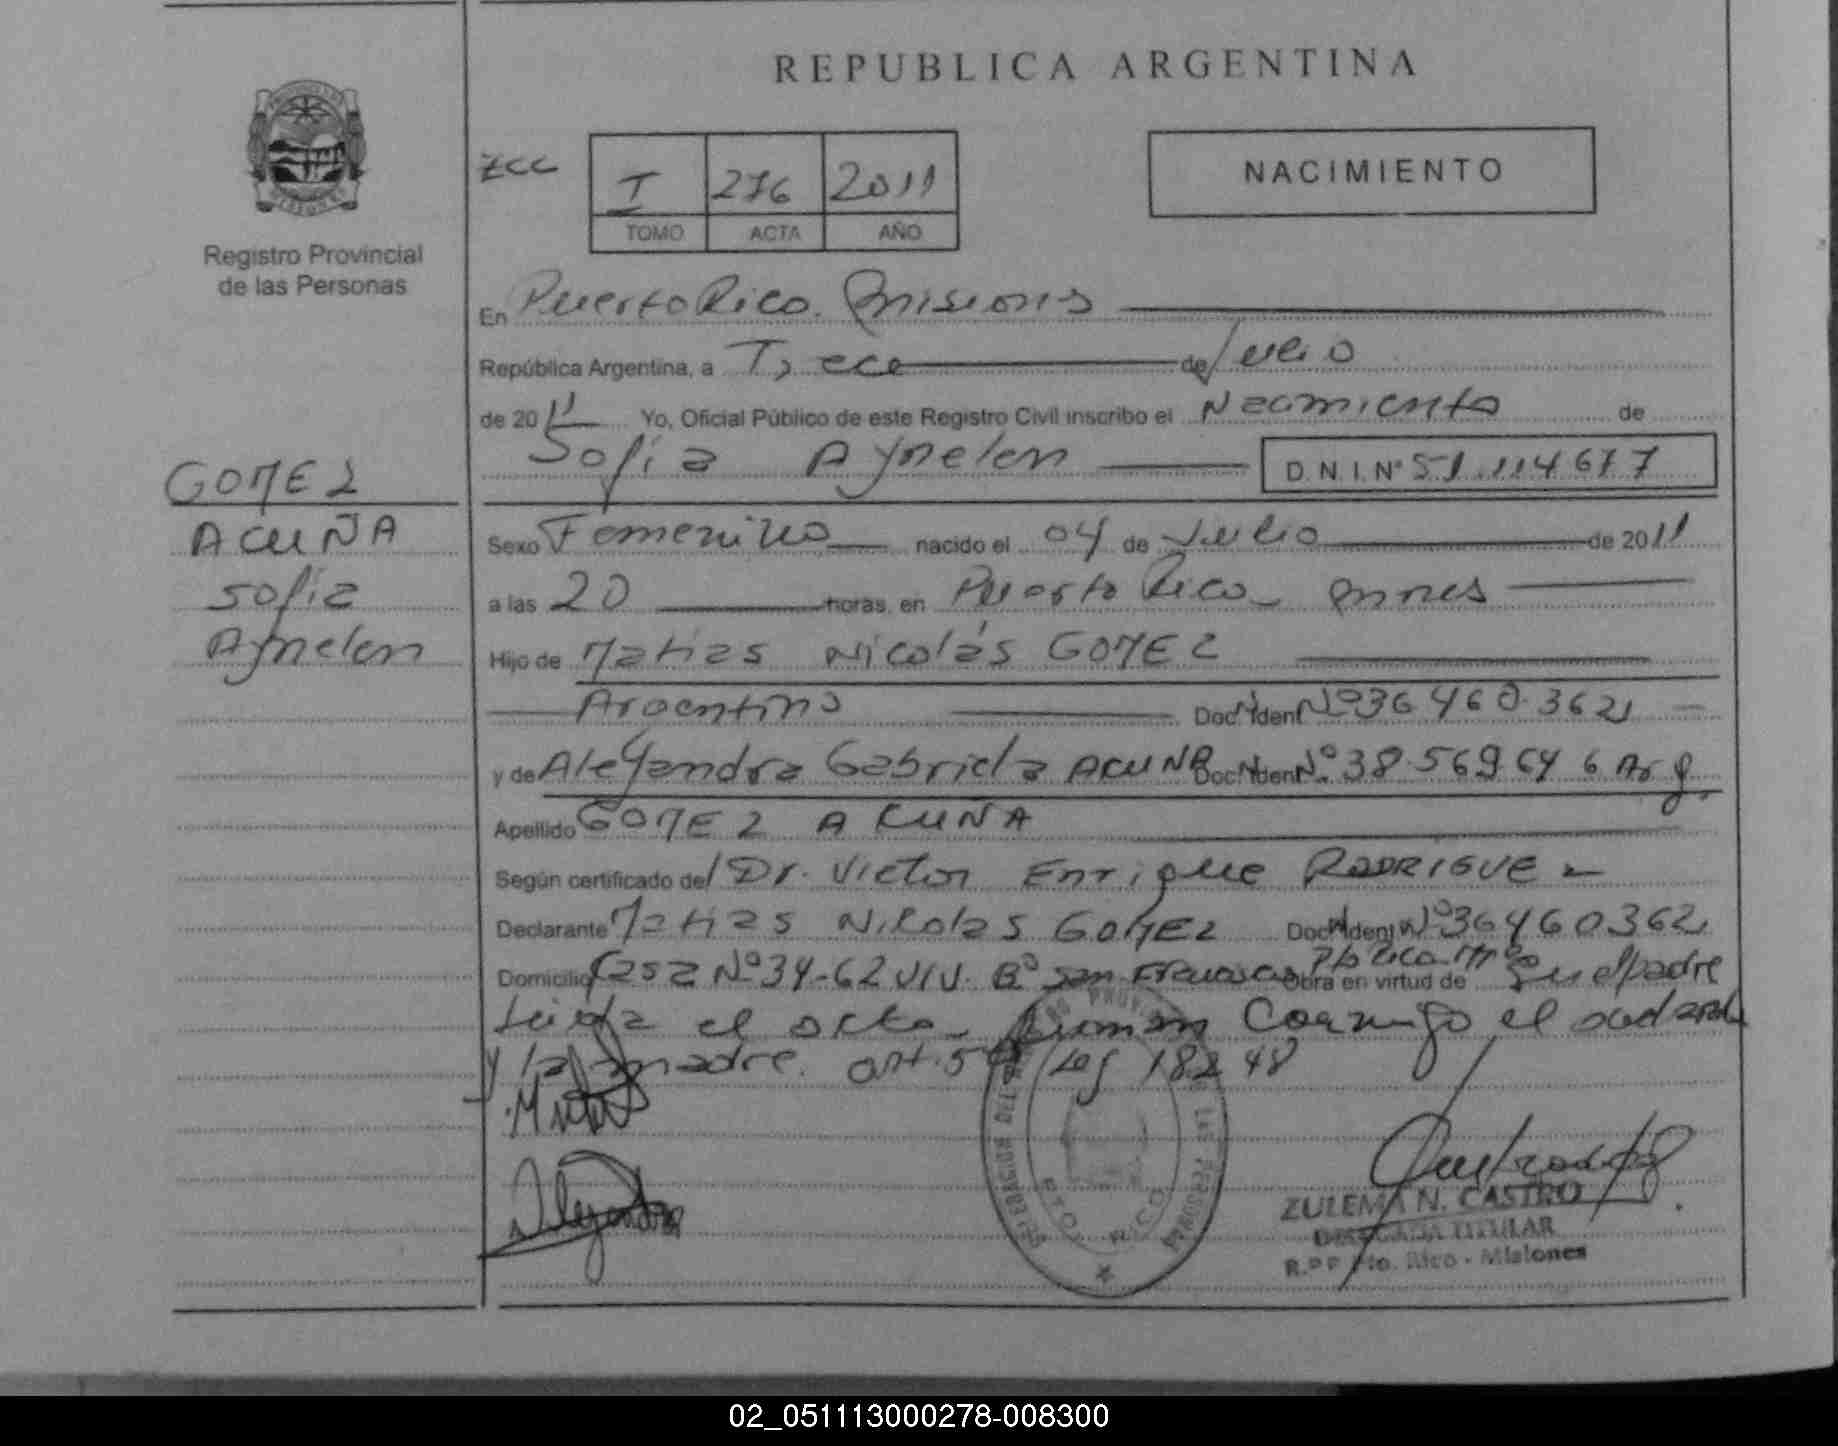 REPUBLICA ARGENTINA
Registro Provincial
de las Personas
I 276 2011
TOMO ACTA AÑO
NACIMIENTO
En Puerto Rico. Misiones
República Argentina, a Trece de Julio
de 2011 Yo, Oficial Público de este Registro Civil inscribo el Nacimiento de
Sofía Aymelen D.N.I.Nº 51.114677
GOMEZ
ACUÑA
Sofía
Aymelen
Sexo Femenino nacido el 04 de Julio de 2011
a las 20 horas, en Puerto Rico Mnes
Hijo de Matias Nicolás GOMEZ
Argentino Doc. Ident. Nº 36.460.362
y de Alejandra Gabriela ACUÑA Doc. Ident. Nº 38.569.646 Arg.
Apellido GOMEZ ACUÑA
Según certificado del Dr. Victor Enrique RODRIGUEZ
Declarante Matias Nicolas GOMEZ Doc. Ident. Nº 36460362
Domicilio Casa Nº 34-62 VIV. Bº San Francisco Pto Rico Mnes Obra en virtud de Ser el padre
Leída el acta Firman Conmigo el padre
y la madre. art. 5º Ley 18248
Alejandra
PTO. RICO
ZULEMA N. CASTRO
DELEGADA TITULAR
R.P.P Pto. Rico - Misiones
02_051113000278-008300